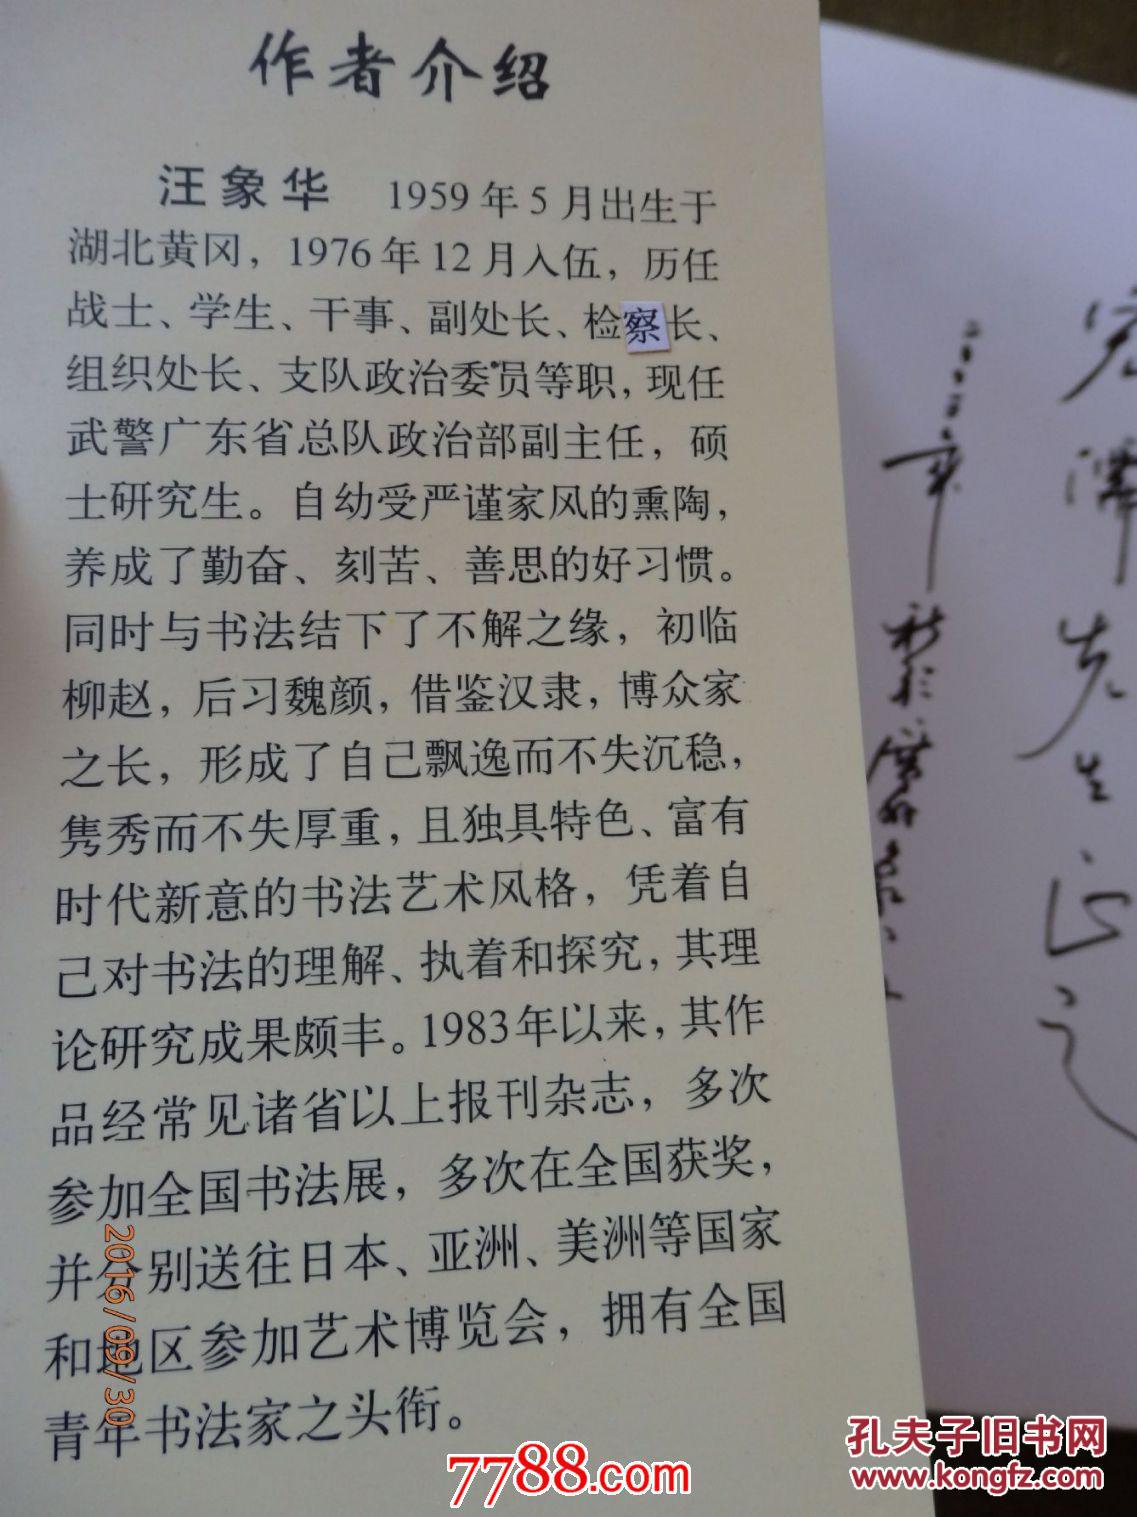 作者介绍
汪象华 1959年5月出生于
湖北黄冈，1976年12月入伍，历任
战士、学生、干事、副处长、检察长、
组织处长、支队政治委员等职，现任
武警广东省总队政治部副主任，硕
士研究生。自幼受严谨家风的熏陶，
养成了勤奋、刻苦、善思的好习惯。
同时与书法结下了不解之缘，初临
柳赵，后习魏颜，借鉴汉隶，博众家
之长，形成了自己飘逸而不失沉稳，
隽秀而不失厚重，且独具特色、富有
时代新意的书法艺术风格，凭着自
己对书法的理解、执着和探究，其理
论研究成果颇丰。1983年以来，其作
品经常见诸省以上报刊杂志，多次
参加全国书法展，多次在全国获奖，
并分别送往日本、亚洲、美洲等国家
和地区参加艺术博览会，拥有全国
青年书法家之头衔。
先生正之
2016/09/30
孔夫子旧书网
www.kongfz.com
7788.com